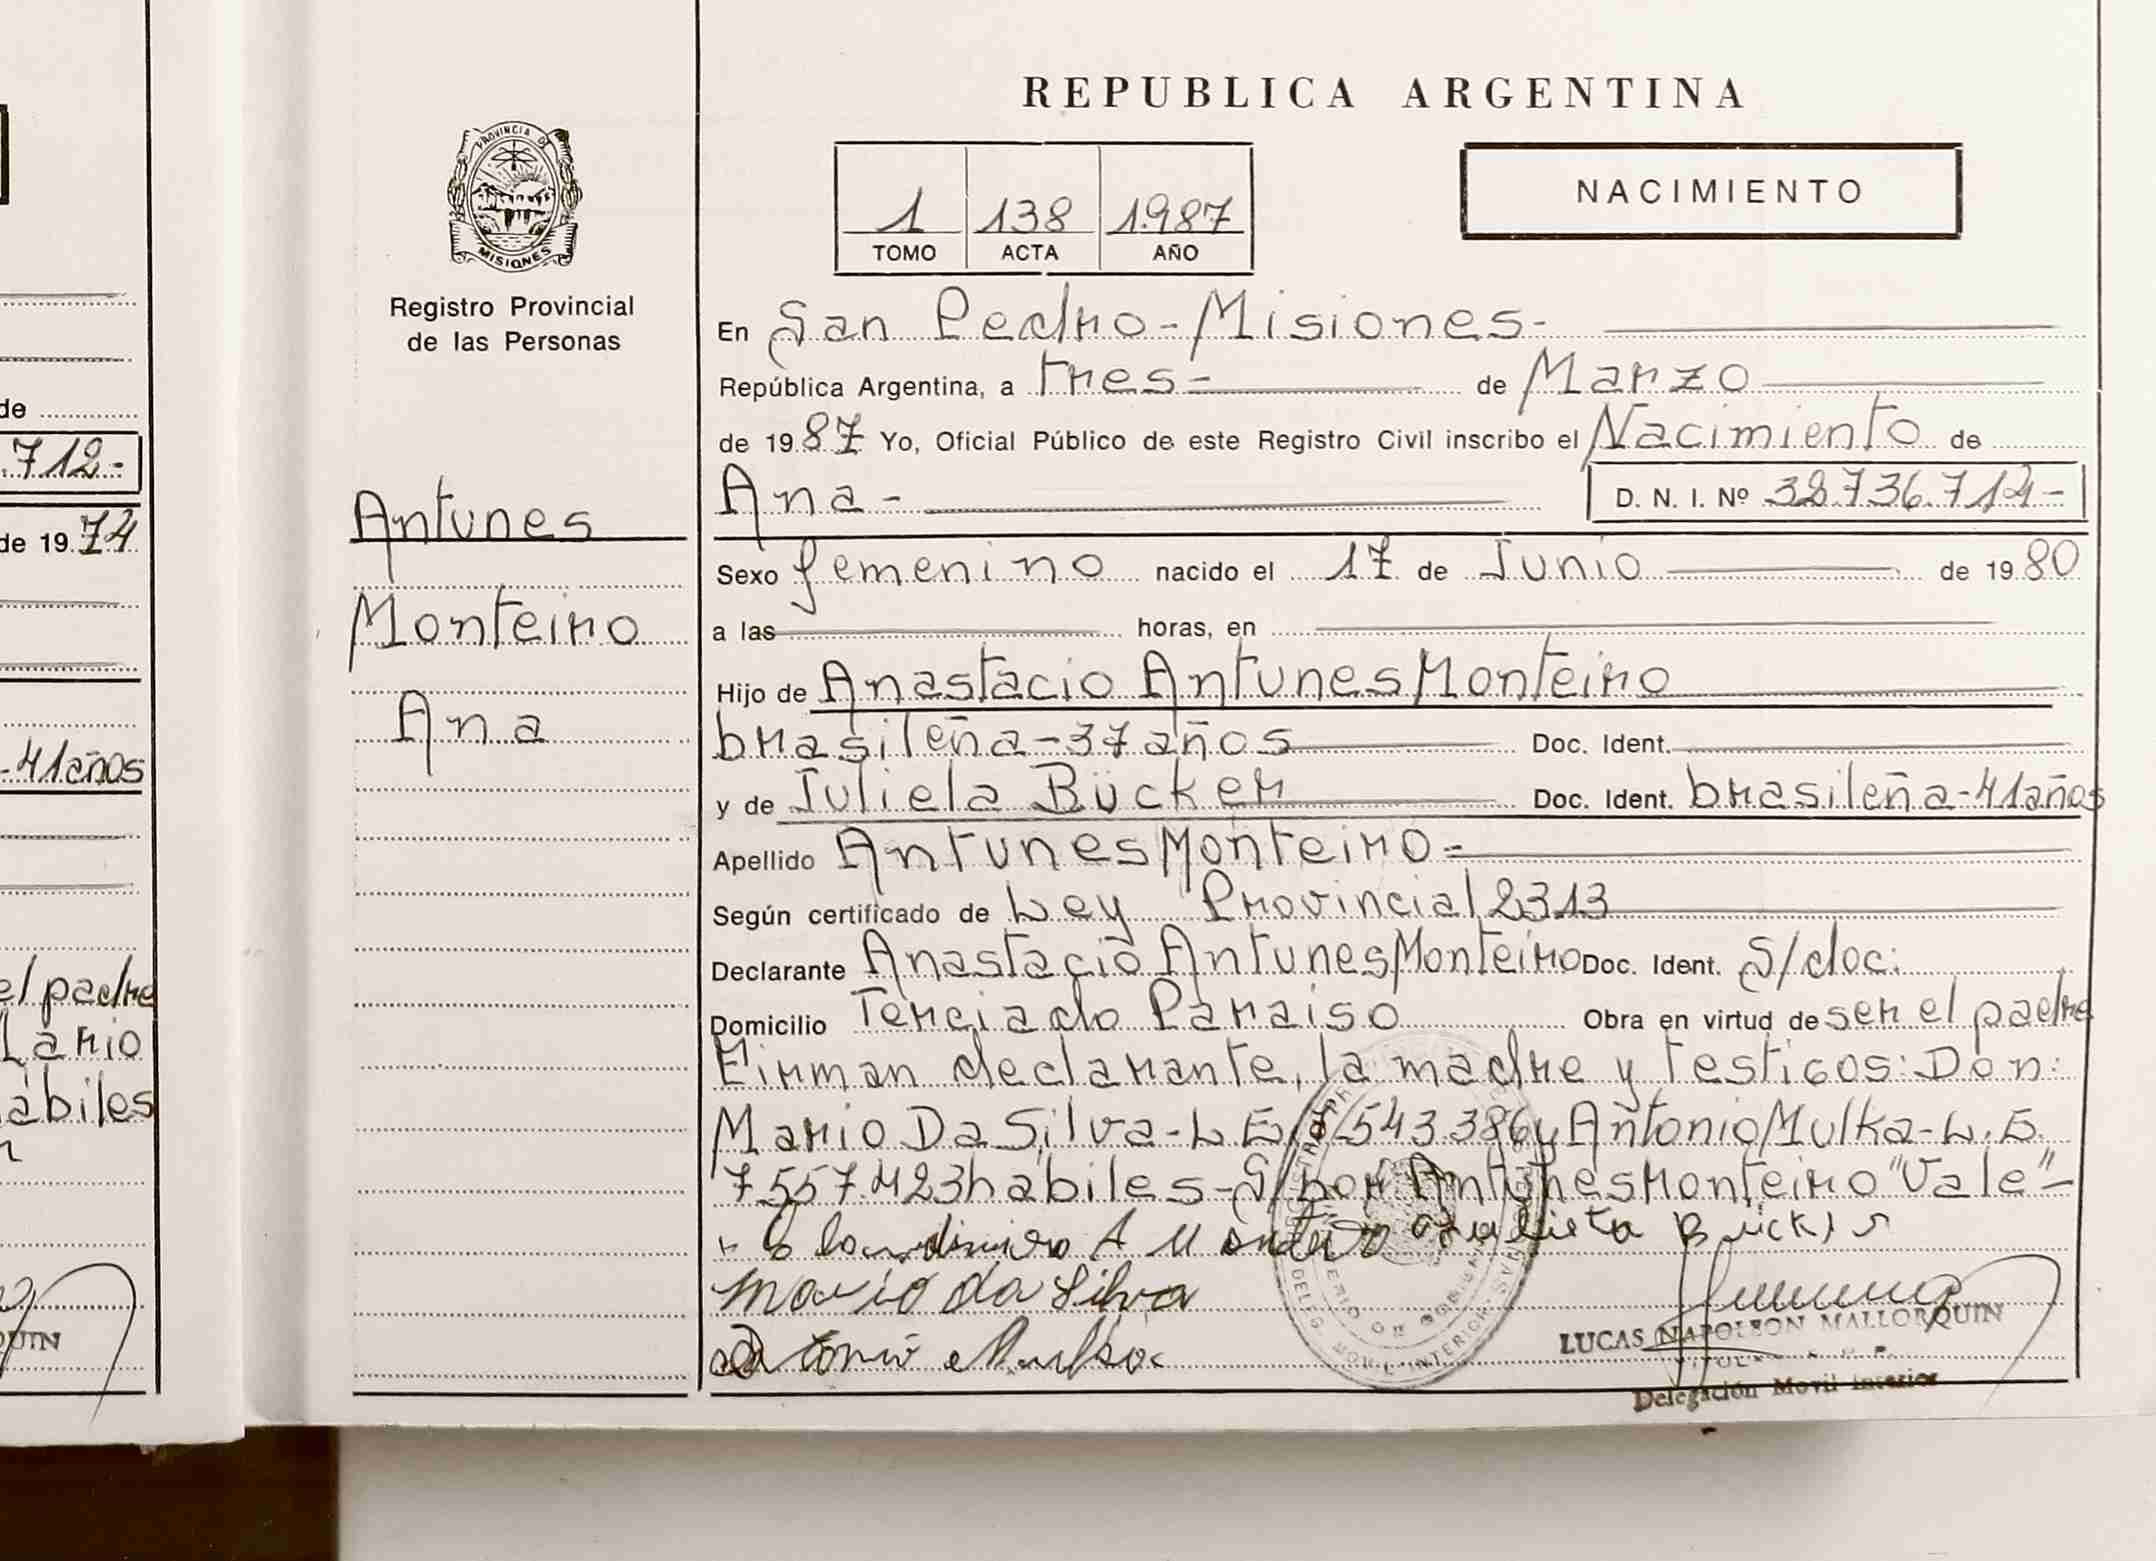 REPUBLICA ARGENTINA
PROVINCIA D
MISIONES
Registro Provincial
de las Personas
1 138 1.987
TOMO ACTA AÑO
NACIMIENTO
En San Pedro - Misiones -
República Argentina, a tres - de Marzo
de 19 87 Yo, Oficial Público de este Registro Civil inscribo el Nacimiento de
Ana - D. N. I. Nº 32.736.714 -
Antunes
Monteiro
Ana
Sexo femenino nacido el 17 de Junio de 19 80
a las horas, en
Hijo de Anastacio Antunes Monteiro
brasileña - 37 años Doc. Ident.
y de Juliela Bücker Doc. Ident. brasileña - 41 años
Apellido Antunes Monteiro -
Según certificado de Ley Provincial 2313
Declarante Anastacio Antunes Monteiro Doc. Ident. S/doc.
Domicilio Terciado Paraiso Obra en virtud de ser el padre
Firman declarante, la madre y testicos: Don:
Mario Da Silva - L.E. 543.386 y Antonio Mulka - L.E.
7.557.423 habiles - S/bor Antunes Monteiro "Vale" -
Mario da Silva
LUCAS NAPOLEON MALLORQUIN
Delegación Movil Interior
de
.712 -
de 19 74
- 41 años
el padre
Lario
abiles
QUIN